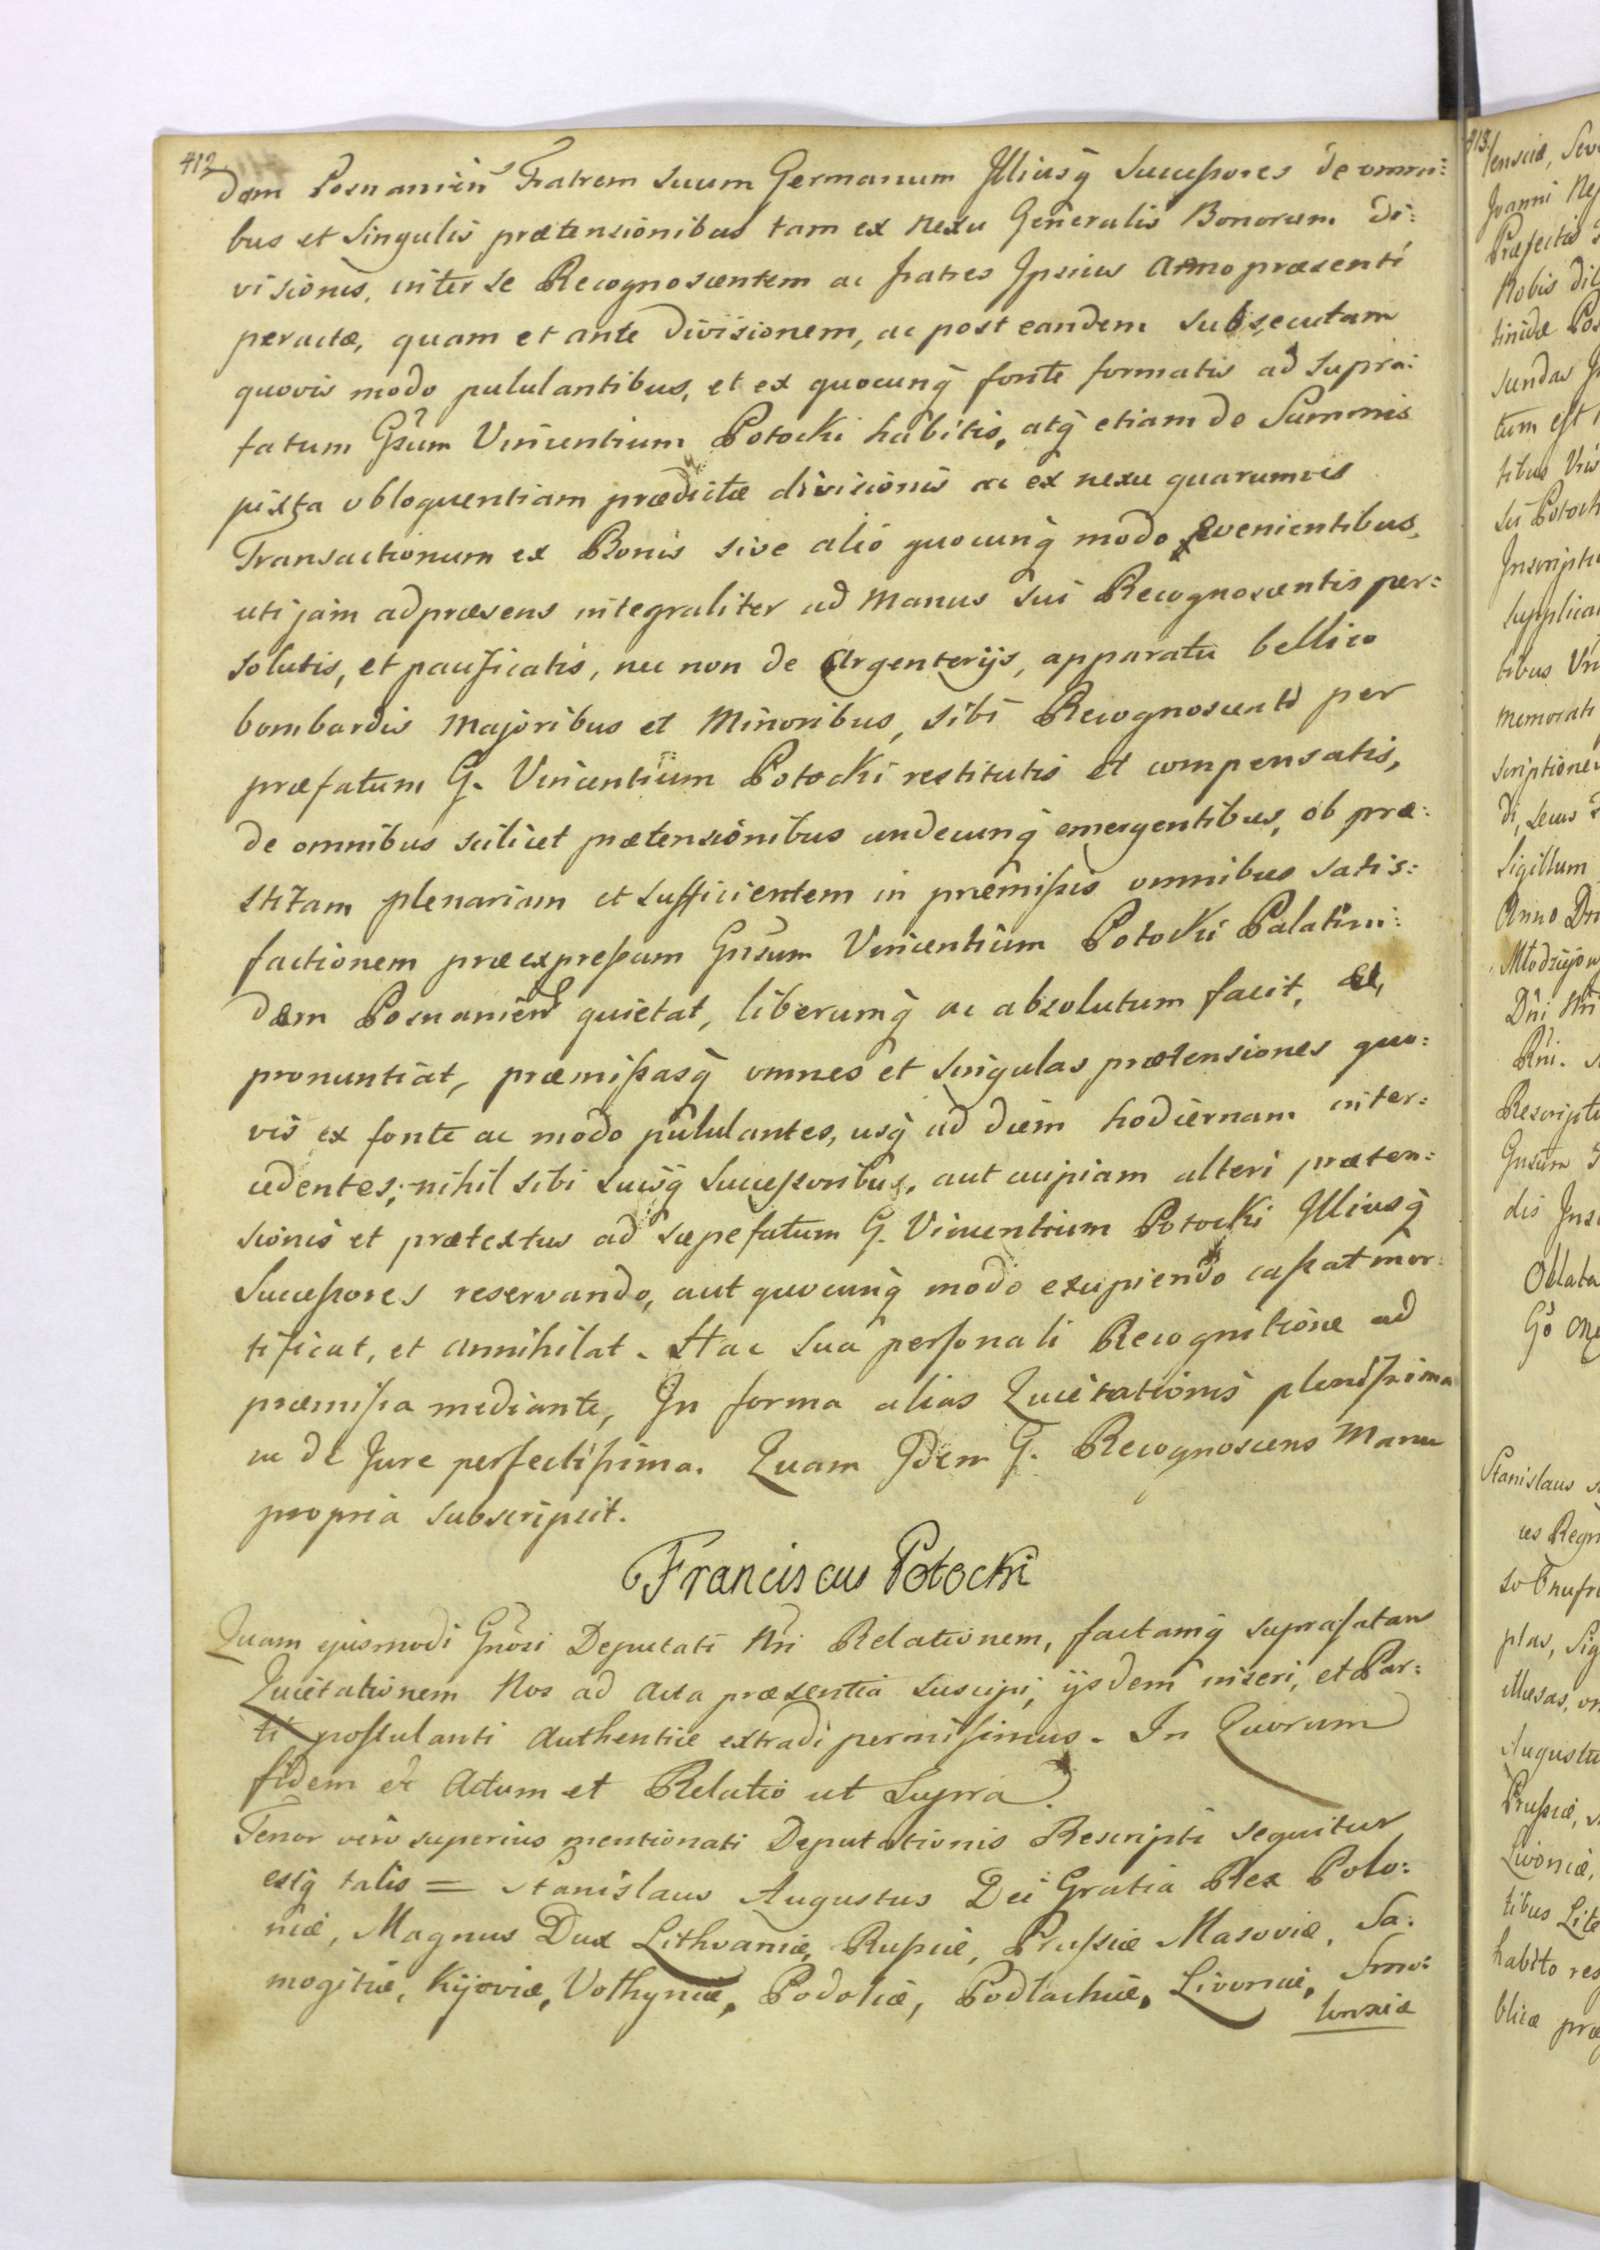 412
dem Posnanien̄ Fratrem suum Germanum Illiusq̀ Successores de omni:
bus et singulis prætensionibus tam ex nexu Generalis Bonorum Di:
visionis, inter se Recognoscentem ac fratres Ipsius Anno præsenti
peractæ, quam et ante Divisionem, ac post eandem subsecutam
quovis modo pululantibus, et ex quocunq̀ fonte formatis ad supra:
fatum Gn̄sum Vincentium Potocki habitis, atq̀ etiam de Summis
juxta obloquentiam prædictæ divisionis ac ex nexu quarumvis
Transactionum ex Bonis sive alio quocunq̀ modo evenientibus,
uti jam adpræsens integraliter ad Manus sui Recognoscentis per:
solutis, et pacificatis, nec non de Argenterijs, apparatu bellico
bombardis Majoribus et Minoribus, sibi Recognoscenti per
præfatum G. Vincentium Potocki restitutis et compensatis,
de omnibus scilicet prætensionibus undecunq̀ emergentibus, ob præ:
stitam plenariam et sufficientem in præmissis omnibus satis:
factionem præexpressum Gn̄sum Vincentium Potocki Palatini:
dem Posnanien̄ quietat, liberumq̀ ac absolutum facit, et,
pronuntiat, præmissasq̀ omnes et singulas prætensiones quo:
vis ex fonte ac modo pululantes, usq̀ ad diem hodiernam inter:
cedentes, nihil sibi suisq̀ Successoribus, aut cuipiam alteri præten:
sionis et prætextus ad sæpefatum G. Vincentium Potocki Illiusq̀
Successores reservando, aut quocunq̀ modo excipiendo cassat mor:
tificat, et annihilat. Hac sua personali Recognitione ad
præmissa mediante, In forma alias Quietationis plenissima
ac de Jure perfectissima. Quam Idem G. Recognoscens Manu
propria subscripsit.
Franciscus Potocki
Quam ejusmodi Gn̄osi Deputati Nr̄i Relationem, factamq̀ suprafatam
Quietationem Nos ad Acta præsentia suscipi, ijsdem inseri, et Par:
ti postulanti Authentice extradi permisimus. In Quorum
fidem etc Actum et Relatio ut Supra
Tenor vero superius mentionati Deputationis Rescripti sequitur
estq̀ talis = Stanislaus Augustus Dei Gratia Rex Polo:
niæ, Magnus Dux Lithvaniæ, Russiæ, Prussiæ Masoviæ, Sa:
mogitiæ, Kijoviæ, Volhyniæ, Podoliæ, Podlachiæ, Livoniæ, Smo:
lensciæ
413.
lensciæ, Seve
Joanni Nep
Præfectis
Nobis dil
tinidæ Pos
sundas
tum est
tibus Vris
sei Potock
Inscriptio
supplicat
tibus Vri
memorati
scriptiones
di, secus
Sigillum
Anno Dn̄i
Młodziejow
Dn̄i Nr̄i
Rn̄i.
Rescriptu
Gn̄sum
dis Inse
Oblata
Stanislaus
ces Regn
so Onufri
ptas, Sig
illæsas, om
Augustu
Prussiæ,
Livoniæ,
tibus Lite
habito res
blicæ præ